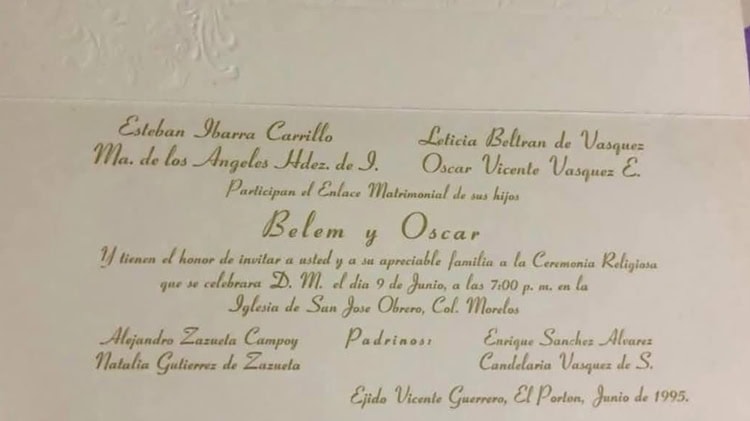 Esteban Ibarra Carrillo Leticia Beltran de Vasquez
Ma. de los Angeles Hdez. de I. Oscar Vicente Vasquez E.
Participan el Enlace Matrimonial de sus hijos
Belem y Oscar
Y tienen el honor de invitar a usted y a su apreciable familia a la Ceremonia Religiosa
que se celebrara D. M. el dia 9 de Junio, a las 7:00 p. m. en la
Iglesia de San Jose Obrero, Col. Morelos
Alejandro Zazueta Campoy Padrinos: Enrique Sanchez Alvarez
Natalia Gutierrez de Zazueta Candelaria Vasquez de S.
Ejido Vicente Guerrero, El Porton, Junio de 1995.